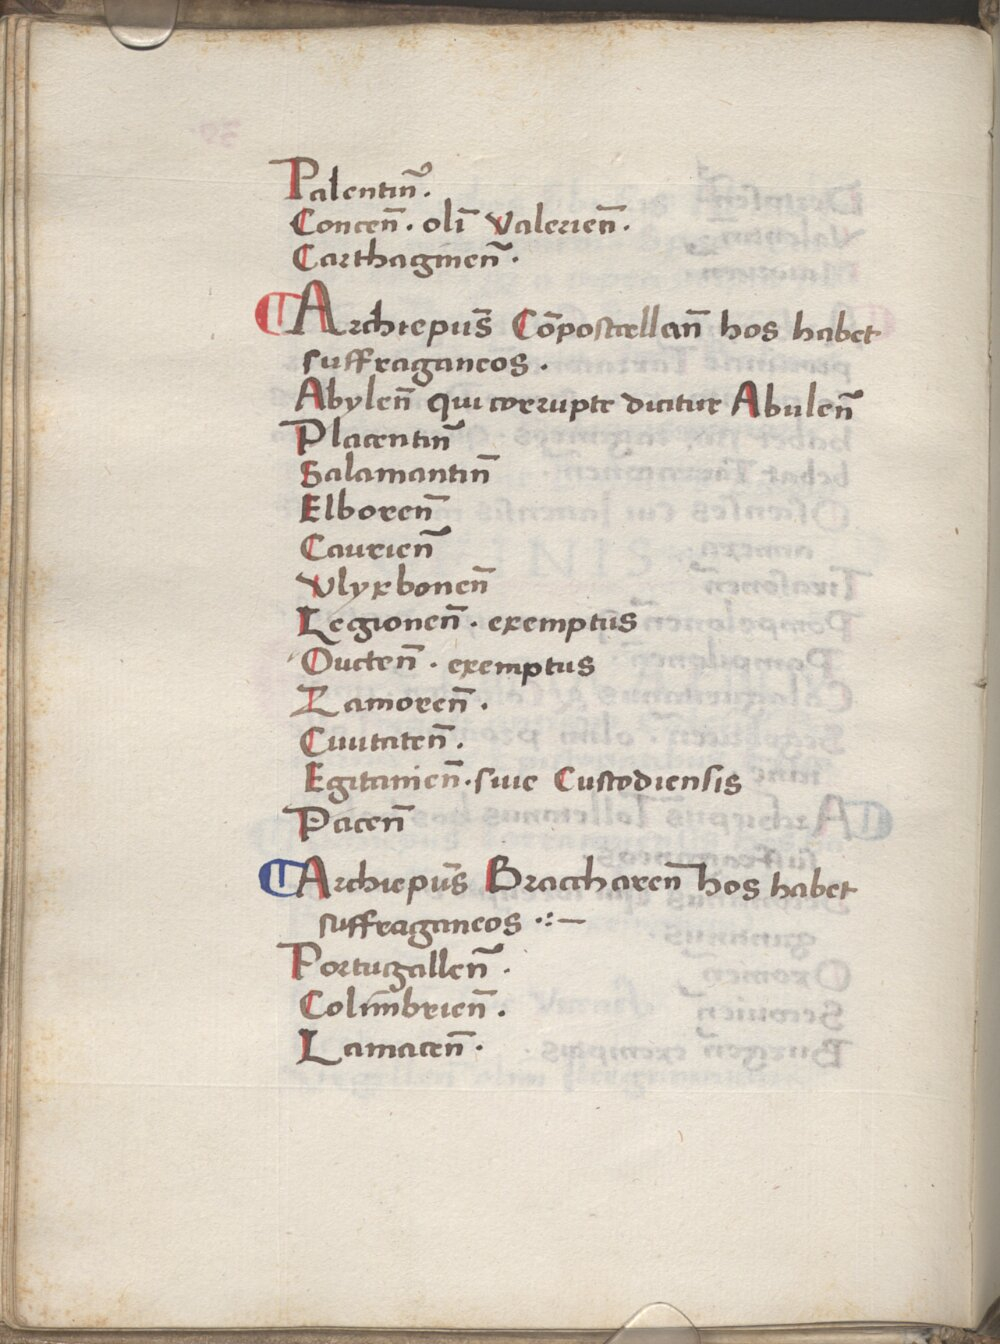 Palentin̄.
Concen̄. oli᷑ Valerien̄.
Carthaginen̄.
¶ Archiepūs Cōpostellan̄ hos habet
suffraganeos.
Abylen̄ qui corrupte dicitur Abulen̄
Placentin̄
Salamantin̄
Elboren̄
Caurien̄
Vlyxbonen̄
Legionen̄. exemptus
Oucten̄. exemptus
Zamoren̄.
Ciuitaten̄.
Egitanien̄. siue Custodiensis
Pacen̄
¶ Archiepūs Braccharen̄ hos habet
suffraganeos ·:—
Portugallen̄.
Colim̄brien̄.
Lamacen̄.